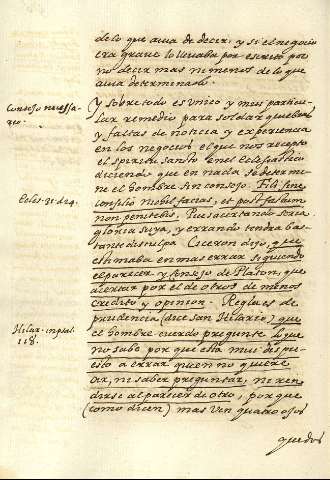 delo que auia de decir, y si el negocio
era graue lo lleuaba por escrito por
no decir mas ni menos delo que
auia determinado.
Consejo necessa-
rio.
Y sobre todo es vnico y mui particu-
lar remedio para soldar quiebras
y faltas de noticia y experiencia
en los negocios el que nos receptó
el spiritu sancto en el Eclesiastico
diciendo que en nada se determi-
ne el hombre sin consejo. Fili sine
Ecles. 32. d. 24.
consilio nihil facias, et post factum
non penitebis. Pues acertando sera
gloria suya, y errando tendra bas-
tante disculpa. Ciceron dijo, que
estimaba en mas errar siguiendo
el parecer y consejo de Platon, que
acertar por el de otros de menos
credito y opinion. Regla es de
Hilar. in psal.
118.
prudencia (dice san Hilario) que
el hombre cuerdo pregunte lo que
no sabe por que esta mui dispues-
to a errar quien no quiere
oir, ni saber preguntar, ni ren-
dirse al parecer de otro, por que
(como dicen) mas ven quatro ojos
que dos